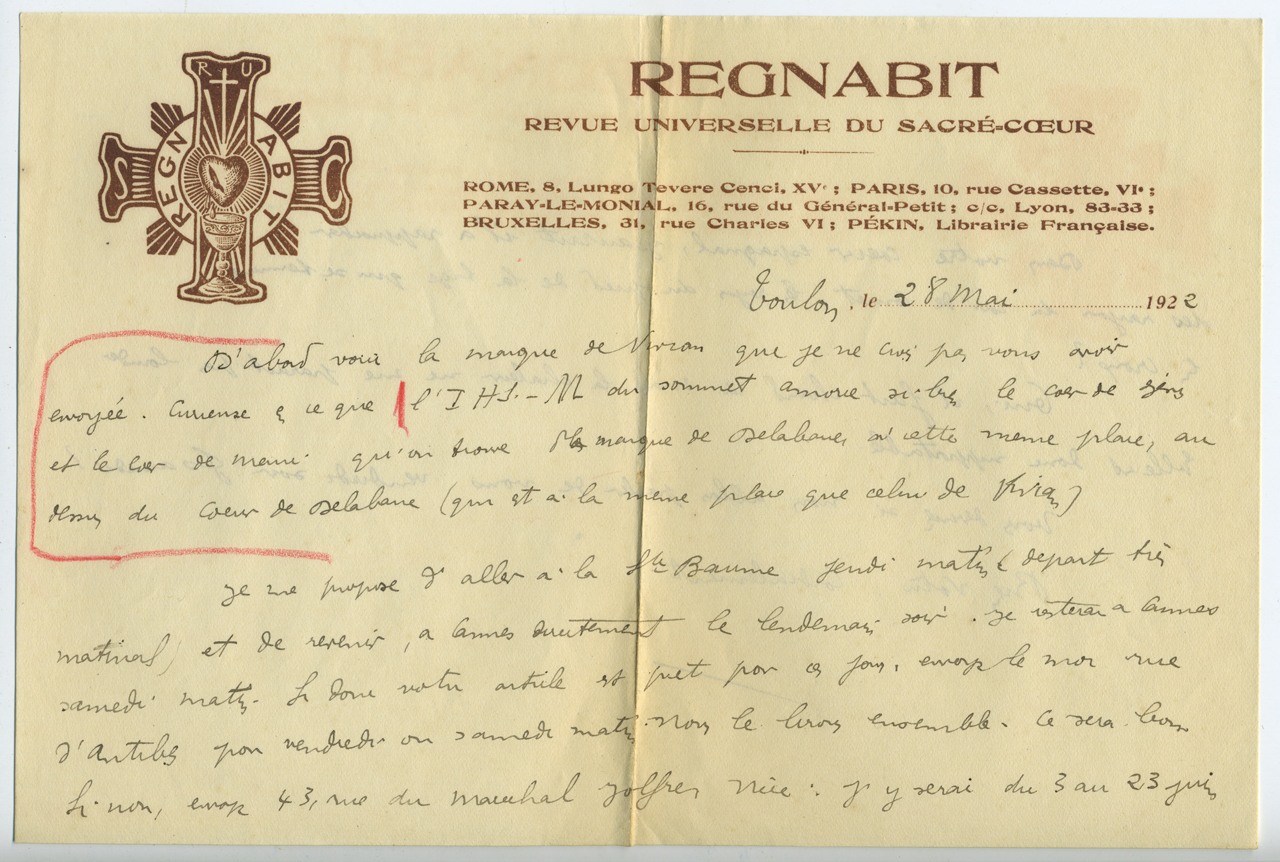 R U
S REGNABIT C
REGNABIT
REVUE UNIVERSELLE DU SACRÉ-CŒUR
ROME, 8, Lungo Tevere Cenci, XVe ; PARIS, 10, rue Cassette, VIe ;
PARAY-LE-MONIAL, 16, rue du Général-Petit ; c/c, Lyon, 83-33 ;
BRUXELLES, 31, rue Charles VI ; PÉKIN, Librairie Française.
Toulon, le 28 Mai 1922
D'abord voici la marque de Vivian que je ne crois pas vous avoir
envoyée. Curieuse en ce que l'IHS.-M du sommet amorce si bien le cœur de Jésus
et le cœur de Marie qu'on trouve marque de Delabane, à cette meme place, au
dessus du Coeur de Delabane (qui est à la meme place que celui de Vivian)
Je me propose d'aller à la Ste Baume jeudi matin (départ très
matinal) et de revenir, à Cannes directement le lendemain soir. Je resterai a Cannes
samedi matin. Si donc votre article est prêt pour ces jours, envoyez le moi rue
d'Antibes pour vendredi ou samedi matin. Nous le lirons ensemble. Ce sera bon
Si non, envoyez 43, rue du Maréchal Joffre, Nice : j'y serai du 3 au 23 juin